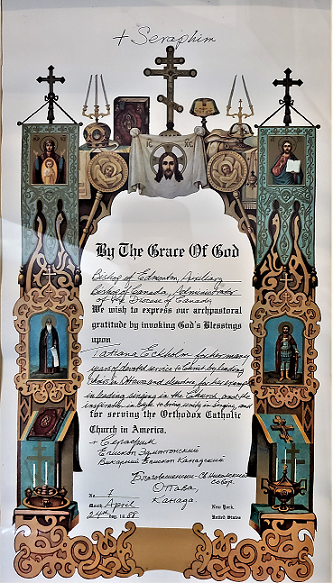 + Seraphim
By The Grace Of God
Bishop of Edmonton, Auxiliary
Bishop of Canada, Administrator
of the Diocese of Canada
We wish to express our archpastoral
gratitude by invoking God's Blessings
upon
Tatiana Eckholm for her many
years of devoted service to Christ by leading
choirs in Ottawa and for her example
in leading singing in the Cathedral, and the
inspiration in
for serving the Orthodox Catholic
Church in America,
+ Серафим
Епископ Эдмонтонский
Викарный Епископ Канадский
Благовещенско-Св. Никольский
собор
Оттава,
Канада.
No. 1
Month April
24th 1988
New York,
United States